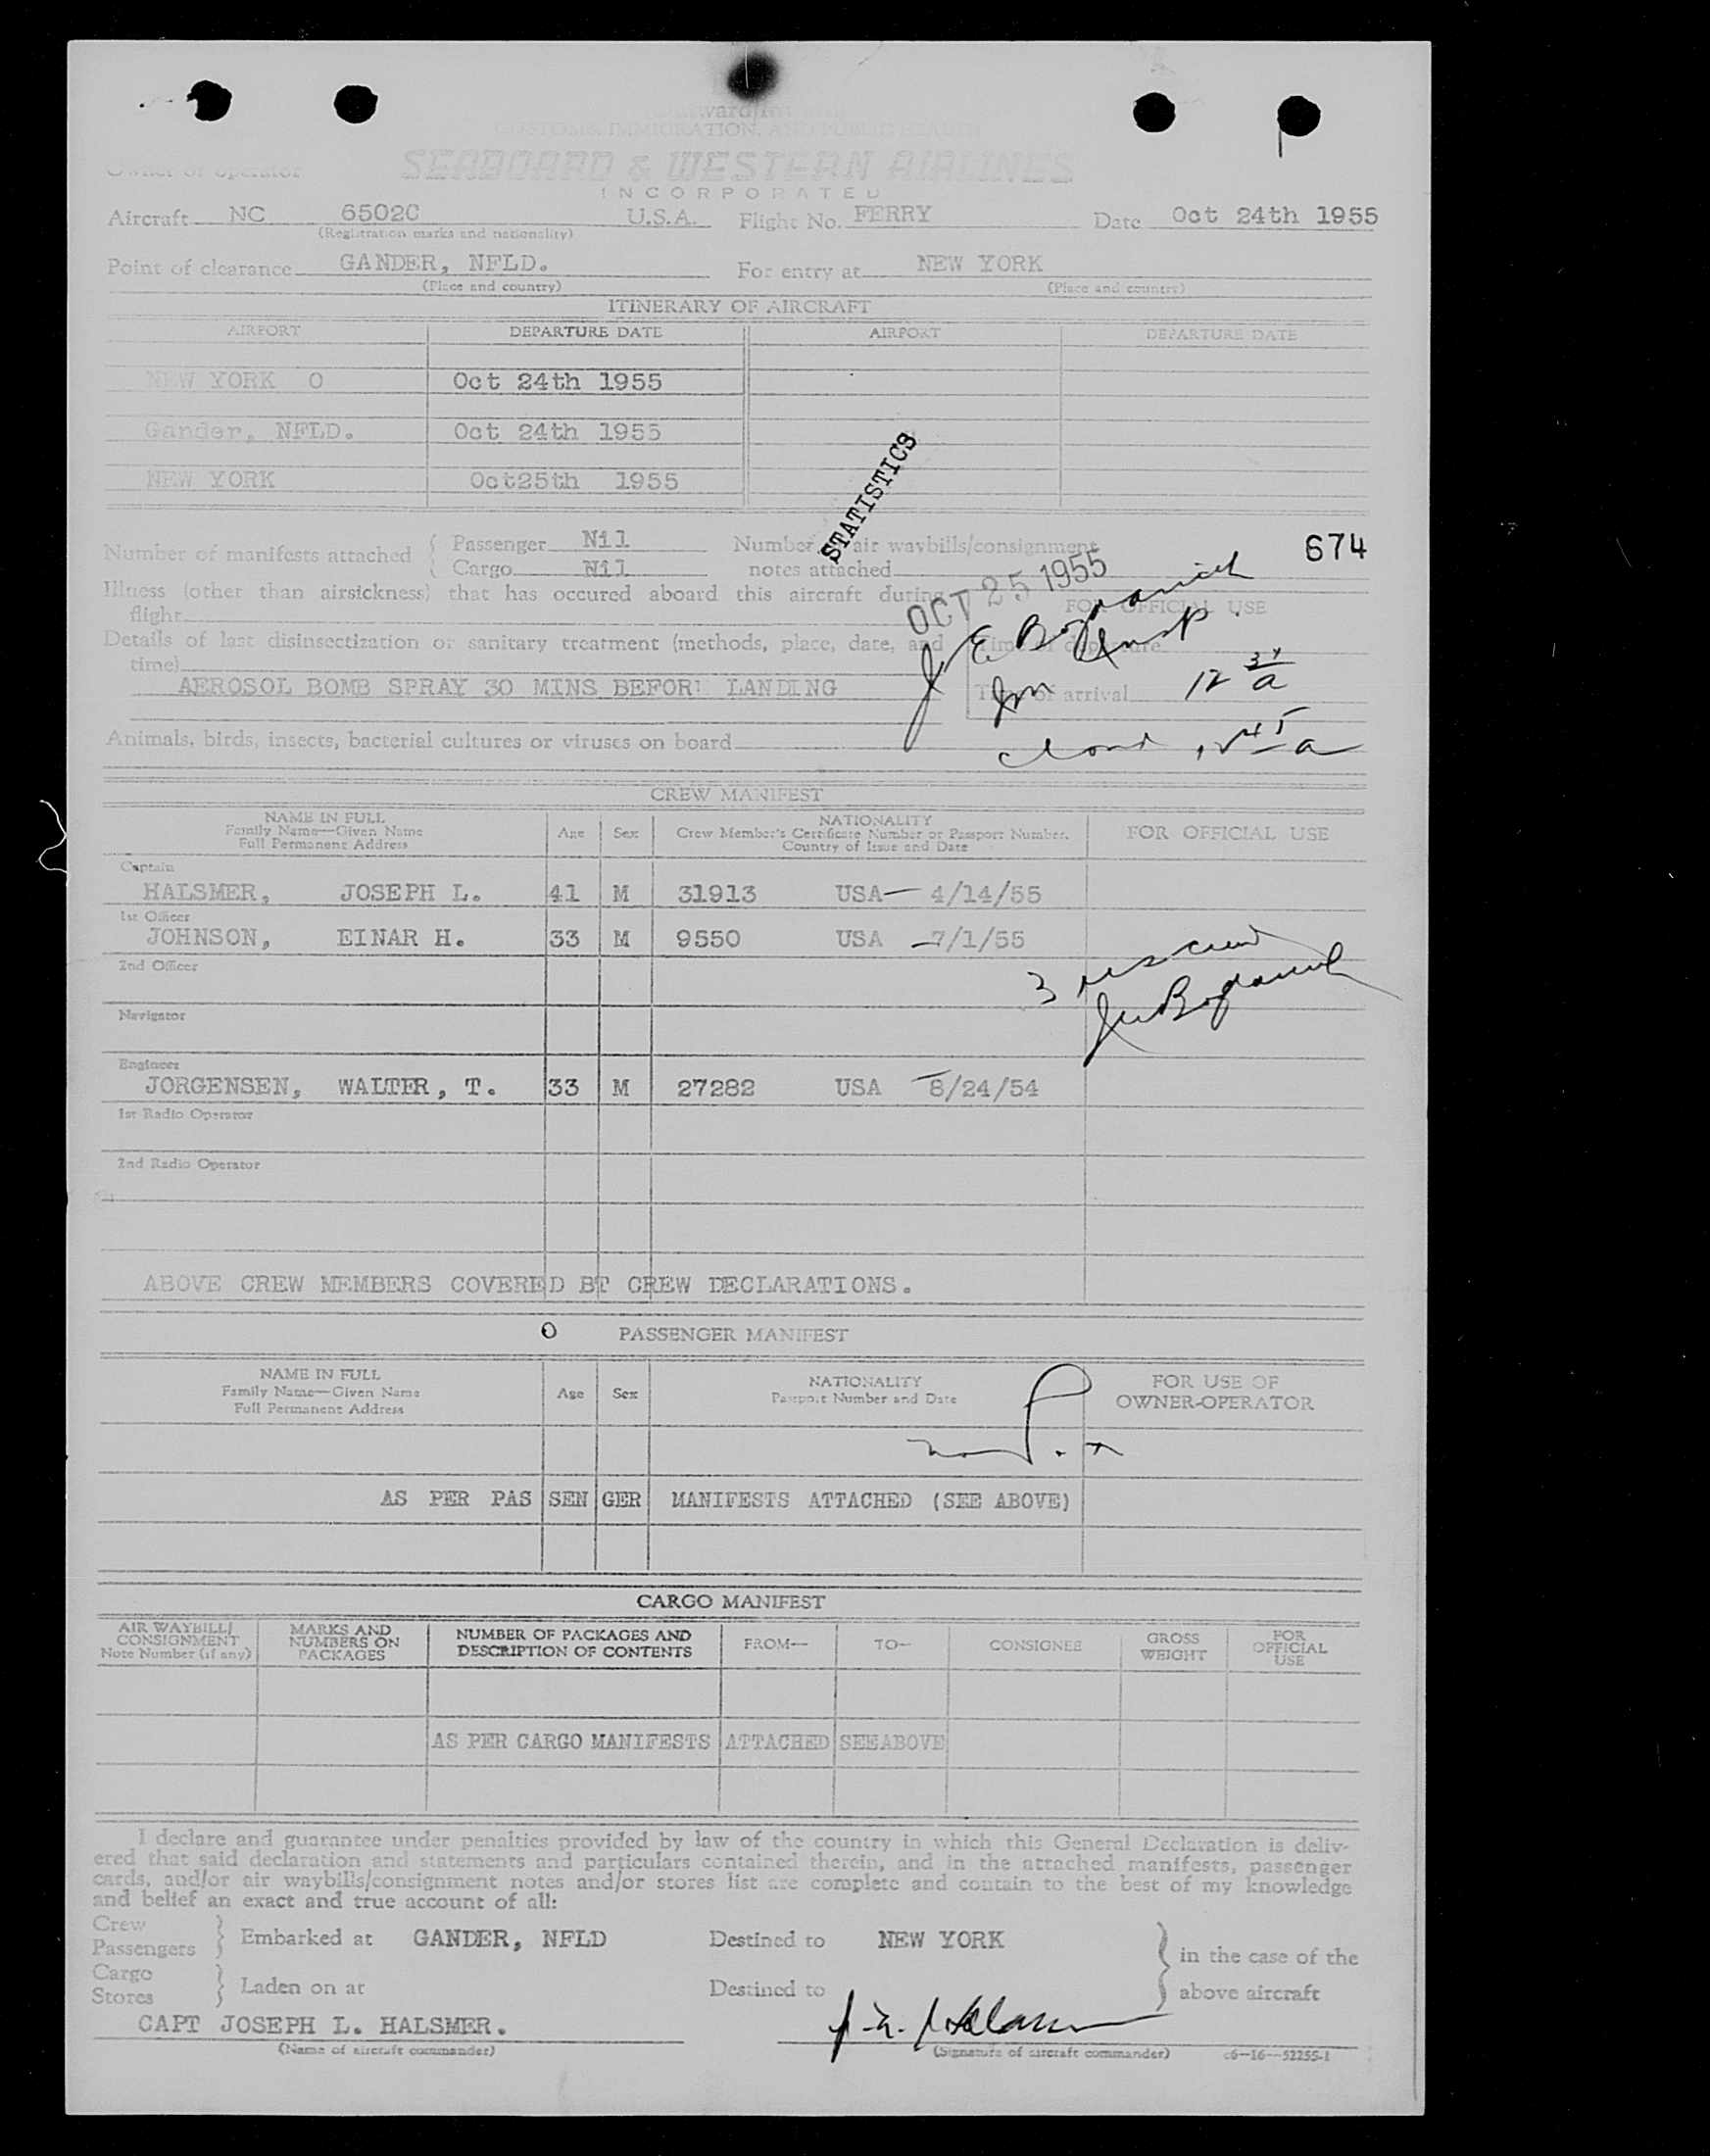 CUSTOMS, IMMIGRATION, AND PUBLIC HEALTH
Owner or operator SEABOARD & WESTERN AIRLINES
INCORPORATED
Aircraft NC 6502C U.S.A. Flight No. FERRY Date Oct 24th 1955
(Registration marks and nationality)
Point of clearance GANDER, NFLD. For entry at NEW YORK
(Place and country) (Place and country)
ITINERARY OF AIRCRAFT
AIRPORT DEPARTURE DATE AIRPORT DEPARTURE DATE
NEW YORK O Oct 24th 1955
Gander, NFLD. Oct 24th 1955
NEW YORK Oct25th 1955
STATISTICS
Number of manifests attached { Passenger Nil Number air waybills/consignment 674
Cargo Nil notes attached
OCT 25 1955
Illness (other than airsickness) that has occured aboard this aircraft during
flight FOR OFFICIAL USE
Details of last disinsectization or sanitary treatment (methods, place, date, and
time) Time of departure
AEROSOL BOMB SPRAY 30 MINS BEFOR LANDING
Time of arrival 12
Animals, birds, insects, bacterial cultures or viruses on board
CREW MANIFEST
NAME IN FULL
Family Name—Given Name
Full Permanent Address
Age Sex
NATIONALITY
Crew Member's Certificate Number or Passport Number.
Country of Issue and Date
FOR OFFICIAL USE
Captain
HALSMER, JOSEPH L. 41 M 31913 USA— 4/14/55
1st Officer
JOHNSON, EINAR H. 33 M 9550 USA —7/1/55
2nd Officer
3 res crew
Navigator
Engineer
JORGENSEN, WALTER, T. 33 M 27282 USA —8/24/54
1st Radio Operator
2nd Radio Operator
ABOVE CREW MEMBERS COVERED BT CREW DECLARATIONS.
O PASSENGER MANIFEST
NAME IN FULL
Family Name—Given Name
Full Permanent Address
Age Sex
NATIONALITY
Passport Number and Date
FOR USE OF
OWNER-OPERATOR
AS PER PAS SEN GER MANIFESTS ATTACHED (SEE ABOVE)
CARGO MANIFEST
AIR WAYBILL/
CONSIGNMENT
Note Number (if any)
MARKS AND
NUMBERS ON
PACKAGES
NUMBER OF PACKAGES AND
DESCRIPTION OF CONTENTS
FROM— TO— CONSIGNEE
GROSS
WEIGHT
FOR
OFFICIAL
USE
AS PER CARGO MANIFESTS ATTACHED SEEABOVE
I declare and guarantee under penalties provided by law of the country in which this General Declaration is deliv-
ered that said declaration and statements and particulars contained therein, and in the attached manifests, passenger
cards, and/or air waybills/consignment notes and/or stores list are complete and contain to the best of my knowledge
and belief an exact and true account of all:
Crew
Passengers } Embarked at GANDER, NFLD Destined to NEW YORK } in the case of the
Cargo
Stores } Laden on at Destined to } above aircraft
CAPT JOSEPH L. HALSMER.
(Name of aircraft commander) (Signature of aircraft commander) c6—16—52255-1